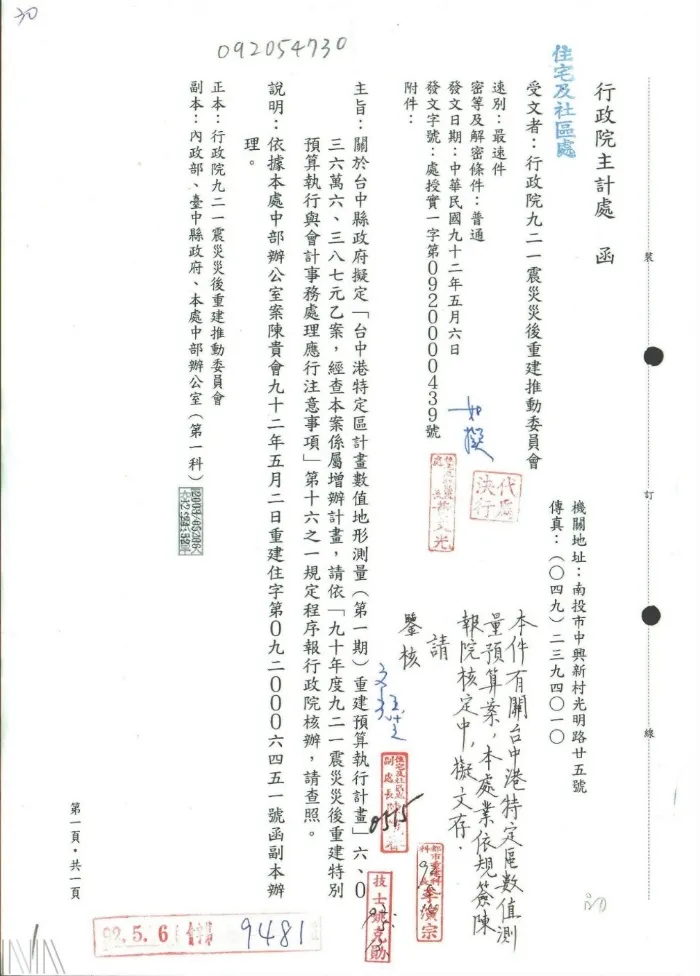 30
092054730
行政院主計處　函
住宅及社區處
受文者：行政院九二一震災災後重建推動委員會
機關地址：南投市中興新村光明路廿五號
傳真：（〇四九）二三九四〇一〇
速別：最速件
密等及解密條件：普通
發文日期：中華民國九十二年五月六日
發文字號：處授實一字第0920000439號
附件：
如擬
代處決行
主旨：關於台中縣政府擬定「台中港特定區計畫數值地形測量（第一期）重建預算執行計畫」六、0
三六萬六、三八七元乙案，經查本案係屬增辦計畫，請依「九十年度九二一震災災後重建特別
預算執行與會計事務處理應行注意事項」第十六之一規定程序報行政院核辦，請查照。
說明：依據本處中部辦公室案陳貴會九十二年五月二日重建住字第0九二000六四五一號函副本辦
理。
正本：行政院九二一震災災後重建推動委員會
副本：內政部、臺中縣政府、本處中部辦公室（第一科）
本件有關台中港特定區數值測
量預算案，本處業依規簽陳
報院核定中，擬文存．
請
鑒核
0515
裝
訂
線
第一頁，共一頁
92.5.6
9481